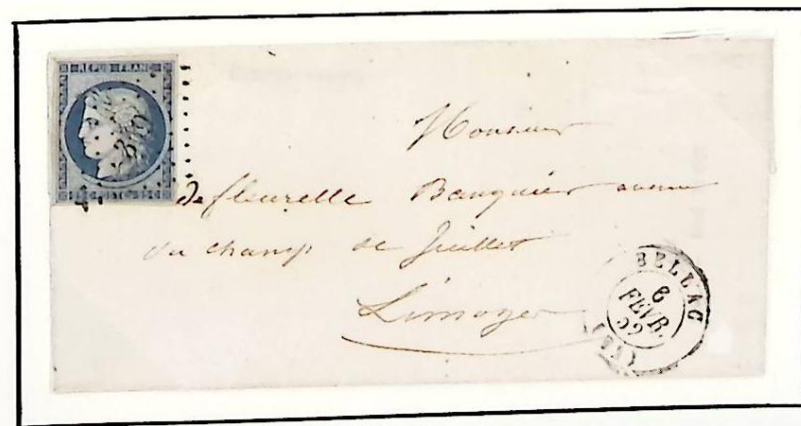 REPUB FRANC
Monsieur
de fleurelle Banquier avenue
du champ de Juillet
Limoges
BELLAC
6
FEVR.
52